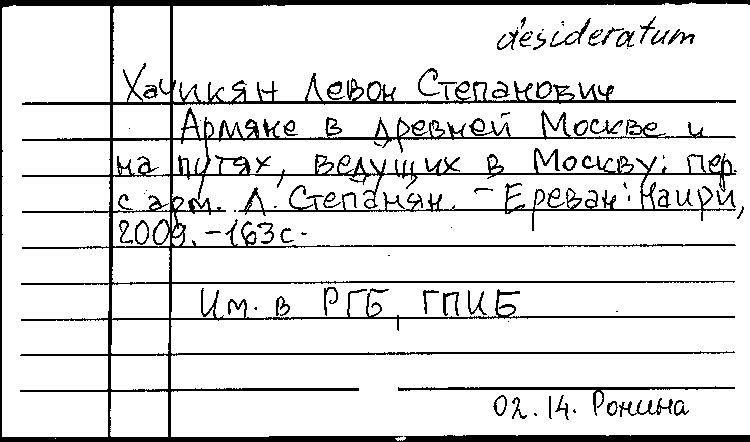 desideratum
Хачикян Левон Степанович
Армяне в древней Москве и
на путях, ведущих в Москву: пер.
с арм. Л. Степанян. - Ереван: Наири,
2009. - 163 с.
Им. в РГБ, ГПИБ
02.14. Ронина